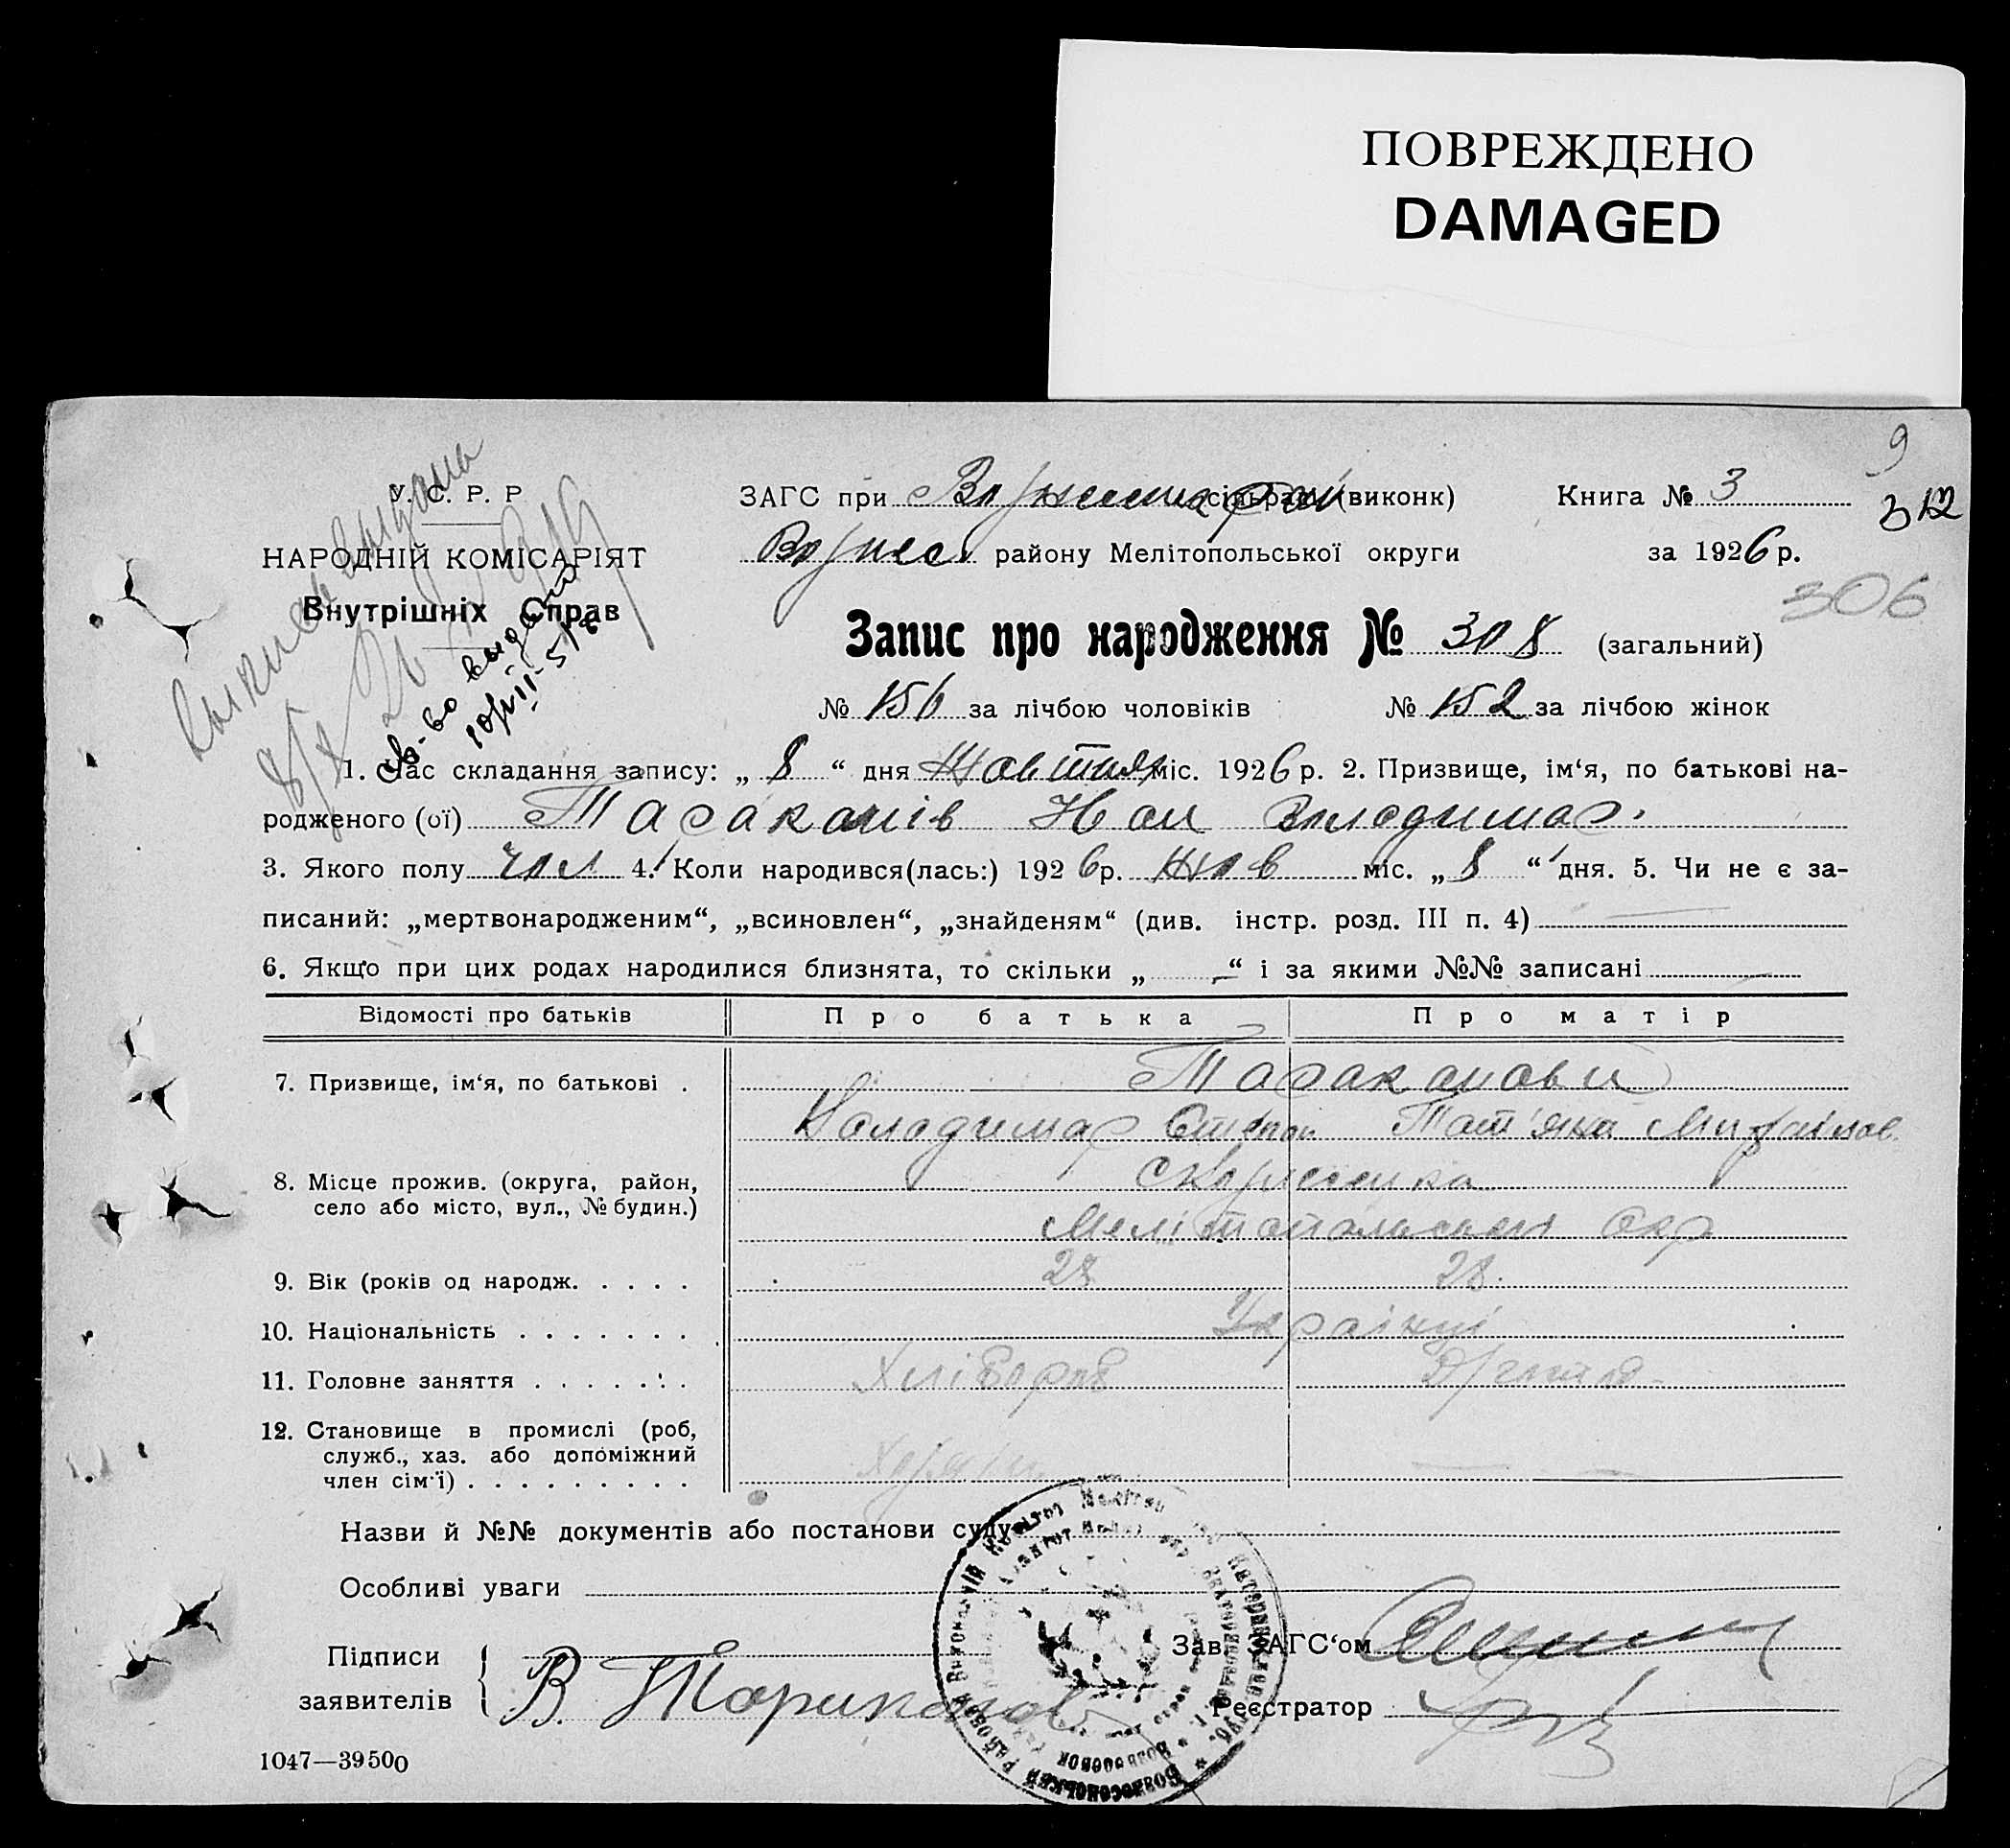 ПОВРЕЖДЕНО
DAMAGED
9
312
У. С. Р. Р
НАРОДНІЙ КОМІСАРІЯТ
Внутрішніх Справ
ЗАГС при сільраді (виконк) Книга № 3
Вознес району Мелітопольської округи за 1926 р.
306
Запис про народження № 308 (загальний)
№ 156 за лічбою чоловіків № 152 за лічбою жінок
1. Час складання запису: „ 8 “ дня Жовтня міс. 1926 р. 2. Призвище, ім‘я, по батькові на-
родженого (ої) Тараканів Володимир.
3. Якого полу чол 4. Коли народився(лась:) 1926 р. жов міс. „ 8 “ дня. 5. Чи не є за-
писаний: „мертвонародженим“, „всиновлен“, „знайденям“ (див. інстр. розд. III п. 4)
6. Якщо при цих родах народилися близнята, то скільки „ – “ і за якими №№ записані —
Відомості про батьків Про батька Про матір
7. Призвище, ім‘я, по батькові . Тараканови
Володимир Степан Тат'яна Михайлов.
8. Місце прожив. (округа, район,
село або місто, вул., № будин.)
Мелітопольської Окр
9. Вік (років од народж. . . . . 28 28.
10. Національність . . . . . . . Українці
11. Головне заняття . . . . . . . Хлібороб
12. Становище в промислі (роб,
служб., хаз. або допоміжний
член сім‘ї) . . . . . . . . . Хазяїн —
Назви й №№ документів або постанови суду
Особливі уваги
Підписи
заявителів
В. Тараканов
Зав. ЗАГС‘ом
Реєстратор
1047—39500